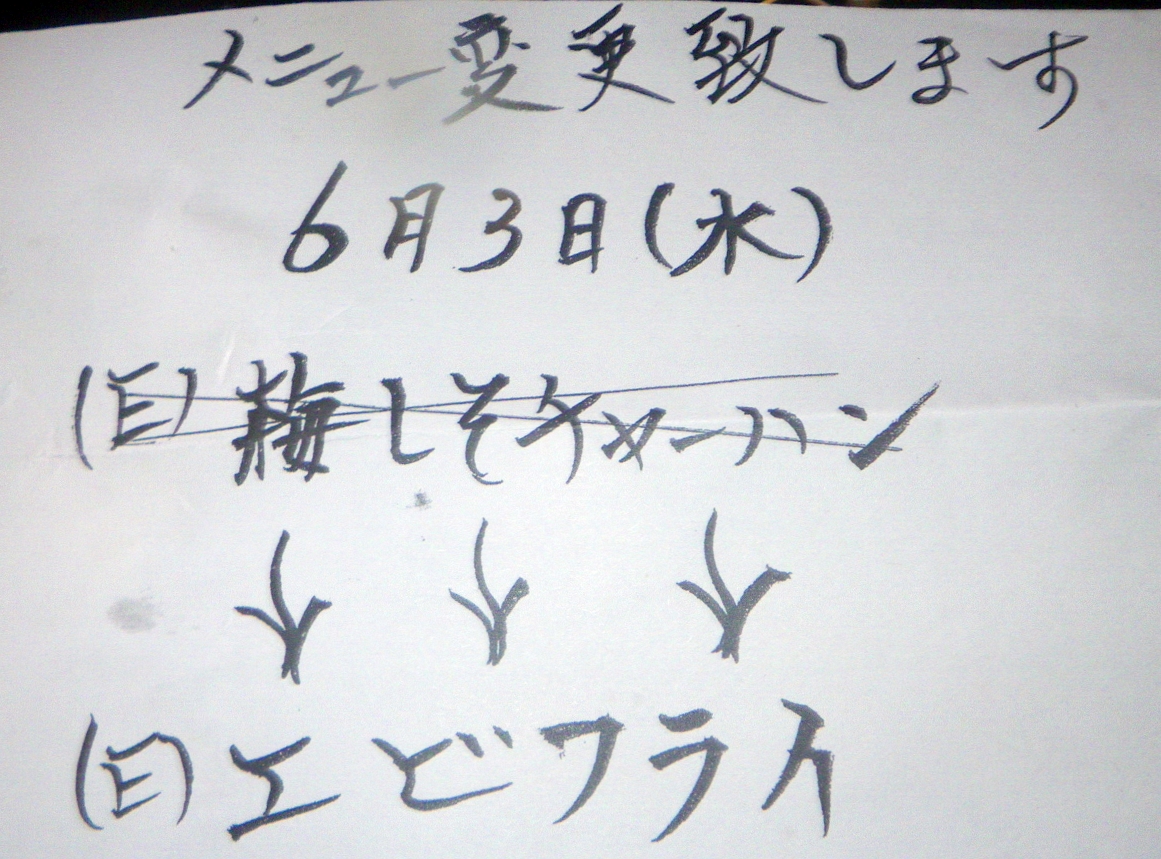 メニュー変更致します
6月3日(水)
(E)梅しそチャーハン
↓ ↓ ↓
(E)エビフライ